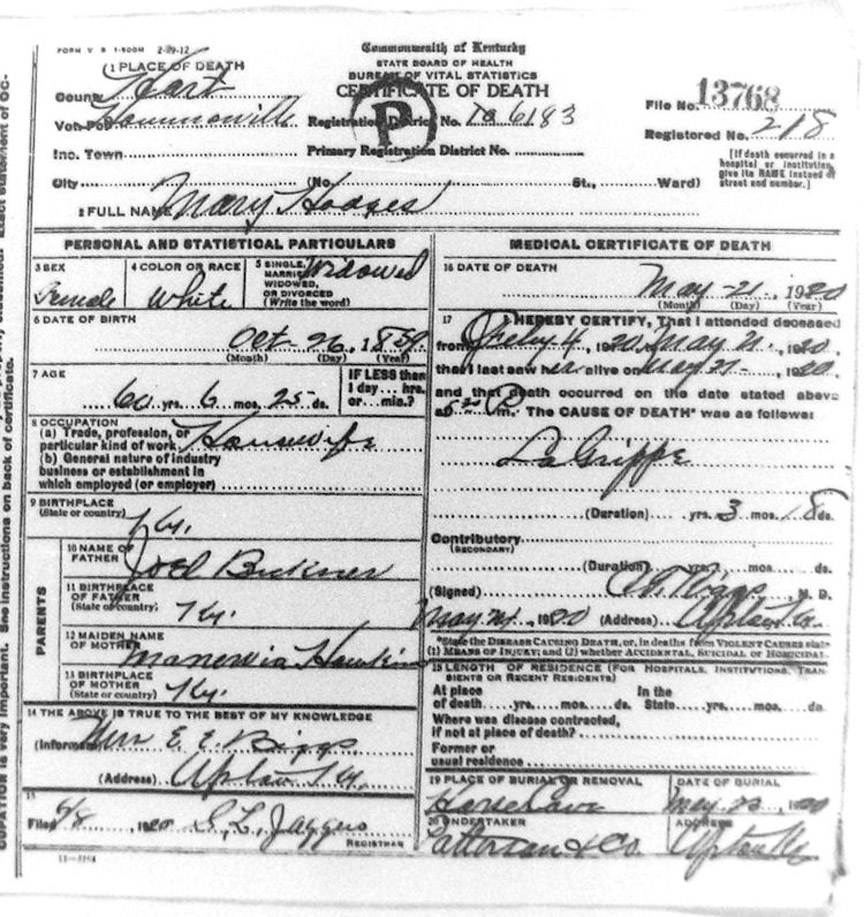 FORM V. S. 1-500M 2-29-12
Commonwealth of Kentucky
STATE BOARD OF HEALTH
BUREAU OF VITAL STATISTICS
CERTIFICATE OF DEATH
1 PLACE OF DEATH
County Hart
Vot. Pct.
Registration District No. 6183
File No. 13768
Registered No. 218
P
Inc. Town
Primary Registration District No.
[If death occurred in a
hospital or institution,
give its NAME instead of
street and number.]
City (No. St., Ward)
2 FULL NAME Mary Hodges
PERSONAL AND STATISTICAL PARTICULARS
3 SEX Female
4 COLOR OR RACE White
5 SINGLE, MARRIED, WIDOWED, OR DIVORCED (Write the word) Widowed
6 DATE OF BIRTH
Oct 26, 1859
(Month) (Day) (Year)
7 AGE
60 yrs. 6 mos. 25 ds.
IF LESS than
1 day... hrs.
or... min.?
8 OCCUPATION
(a) Trade, profession, or
particular kind of work Housewife
(b) General nature of industry
business or establishment in
which employed (or employer)
9 BIRTHPLACE
(State or country) Ky.
PARENTS
10 NAME OF
FATHER Joel
11 BIRTHPLACE
OF FATHER
(State or country) Ky.
12 MAIDEN NAME
OF MOTHER Hawkins
13 BIRTHPLACE
OF MOTHER
(State or country) Ky.
14 THE ABOVE IS TRUE TO THE BEST OF MY KNOWLEDGE
(Informant) E. E. Biggs
(Address) Upton Ky.
15
Filed 6/8, 1920 S. L. Jaggers
REGISTRAR
11-3184
MEDICAL CERTIFICATE OF DEATH
16 DATE OF DEATH
May 21, 1920
(Month) (Day) (Year)
17 I HEREBY CERTIFY, That I attended deceased
from Feby 4, 1920, May 21, 1920,
that I last saw her alive on May 21, 1920,
and that death occurred on the date stated above
at m. The CAUSE OF DEATH* was as follows:
La Grippe
(Duration) yrs. 3 mos. 18 ds.
Contributory
(SECONDARY)
(Duration) yrs. mos. ds.
(Signed) M. D.
May 21, 1920 (Address) Upton Ky.
*State the DISEASE CAUSING DEATH, or, in deaths from VIOLENT CAUSES state
(1) MEANS OF INJURY; and (2) whether ACCIDENTAL, SUICIDAL or HOMICIDAL.
18 LENGTH OF RESIDENCE (FOR HOSPITALS, INSTITUTIONS, TRANSIENTS OR RECENT RESIDENTS)
At place of death yrs. mos. ds. In the State yrs. mos. ds.
Where was disease contracted,
if not at place of death?
Former or
usual residence
19 PLACE OF BURIAL OR REMOVAL
Horse Cave
DATE OF BURIAL
May 23, 1920
20 UNDERTAKER
Patterson & Co.
ADDRESS
Upton Ky